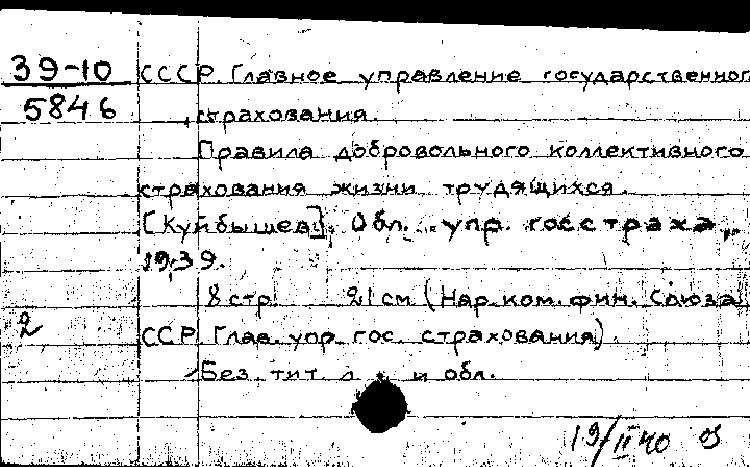 39-10 СССР. Главное управление государственного
5846 страхования.
Правила добровольного коллективного
страхования жизни трудящихся.
[Куйбышев], Обл. упр. госстраха,
1939.
8 стр. 21 см (Нар. ком. фин. Союза
2 ССР. Глав. упр. гос. страхования).
Без тит. л. и обл.
19/II 40